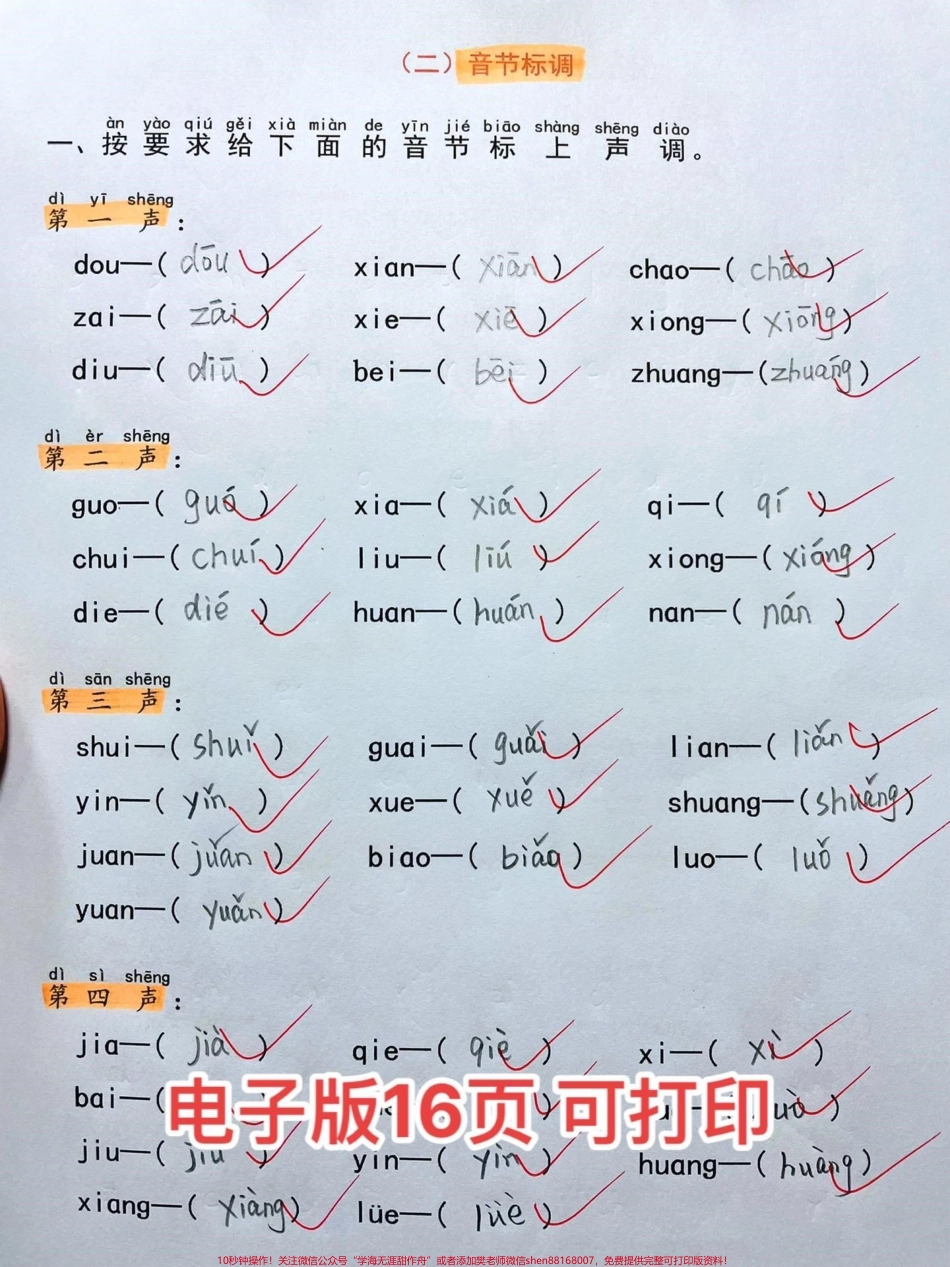 （二）音节标调
àn yào qiú gěi xià miàn de yīn jié biāo shàng shēng diào
一、按要求给下面的音节标上声调。
dì yī shēng
第一声：
dou—( dōu ) xian—( xiān ) chao—( chāo )
zai—( zāi ) xie—( xiē ) xiong—( xiōng )
diu—( diū ) bei—( bēi ) zhuang—(zhuāng)
dì èr shēng
第二声：
guo—( guó ) xia—( xiá ) qi—( qí )
chui—( chuí ) liu—( liú ) xiong—( xióng )
die—( dié ) huan—( huán ) nan—( nán )
dì sān shēng
第三声：
shui—( shuǐ ) guai—( guǎi ) lian—( liǎn )
yin—( yǐn ) xue—( xuě ) shuang—(shuǎng)
juan—( juǎn ) biao—( biǎo ) luo—( luǒ )
yuan—( yuǎn )
dì sì shēng
第四声：
jia—( jià ) qie—( qiè ) xi—( xì )
bai—(
电子版16页 可打印
jiu—( jiù ) yin—( yìn ) huang—( huàng )
xiang—( xiàng ) lüe—( lüè )
10秒钟操作！关注微信公众号“学海无涯甜作舟”或者添加樊老师微信shen88168007，免费提供完整可打印版资料！